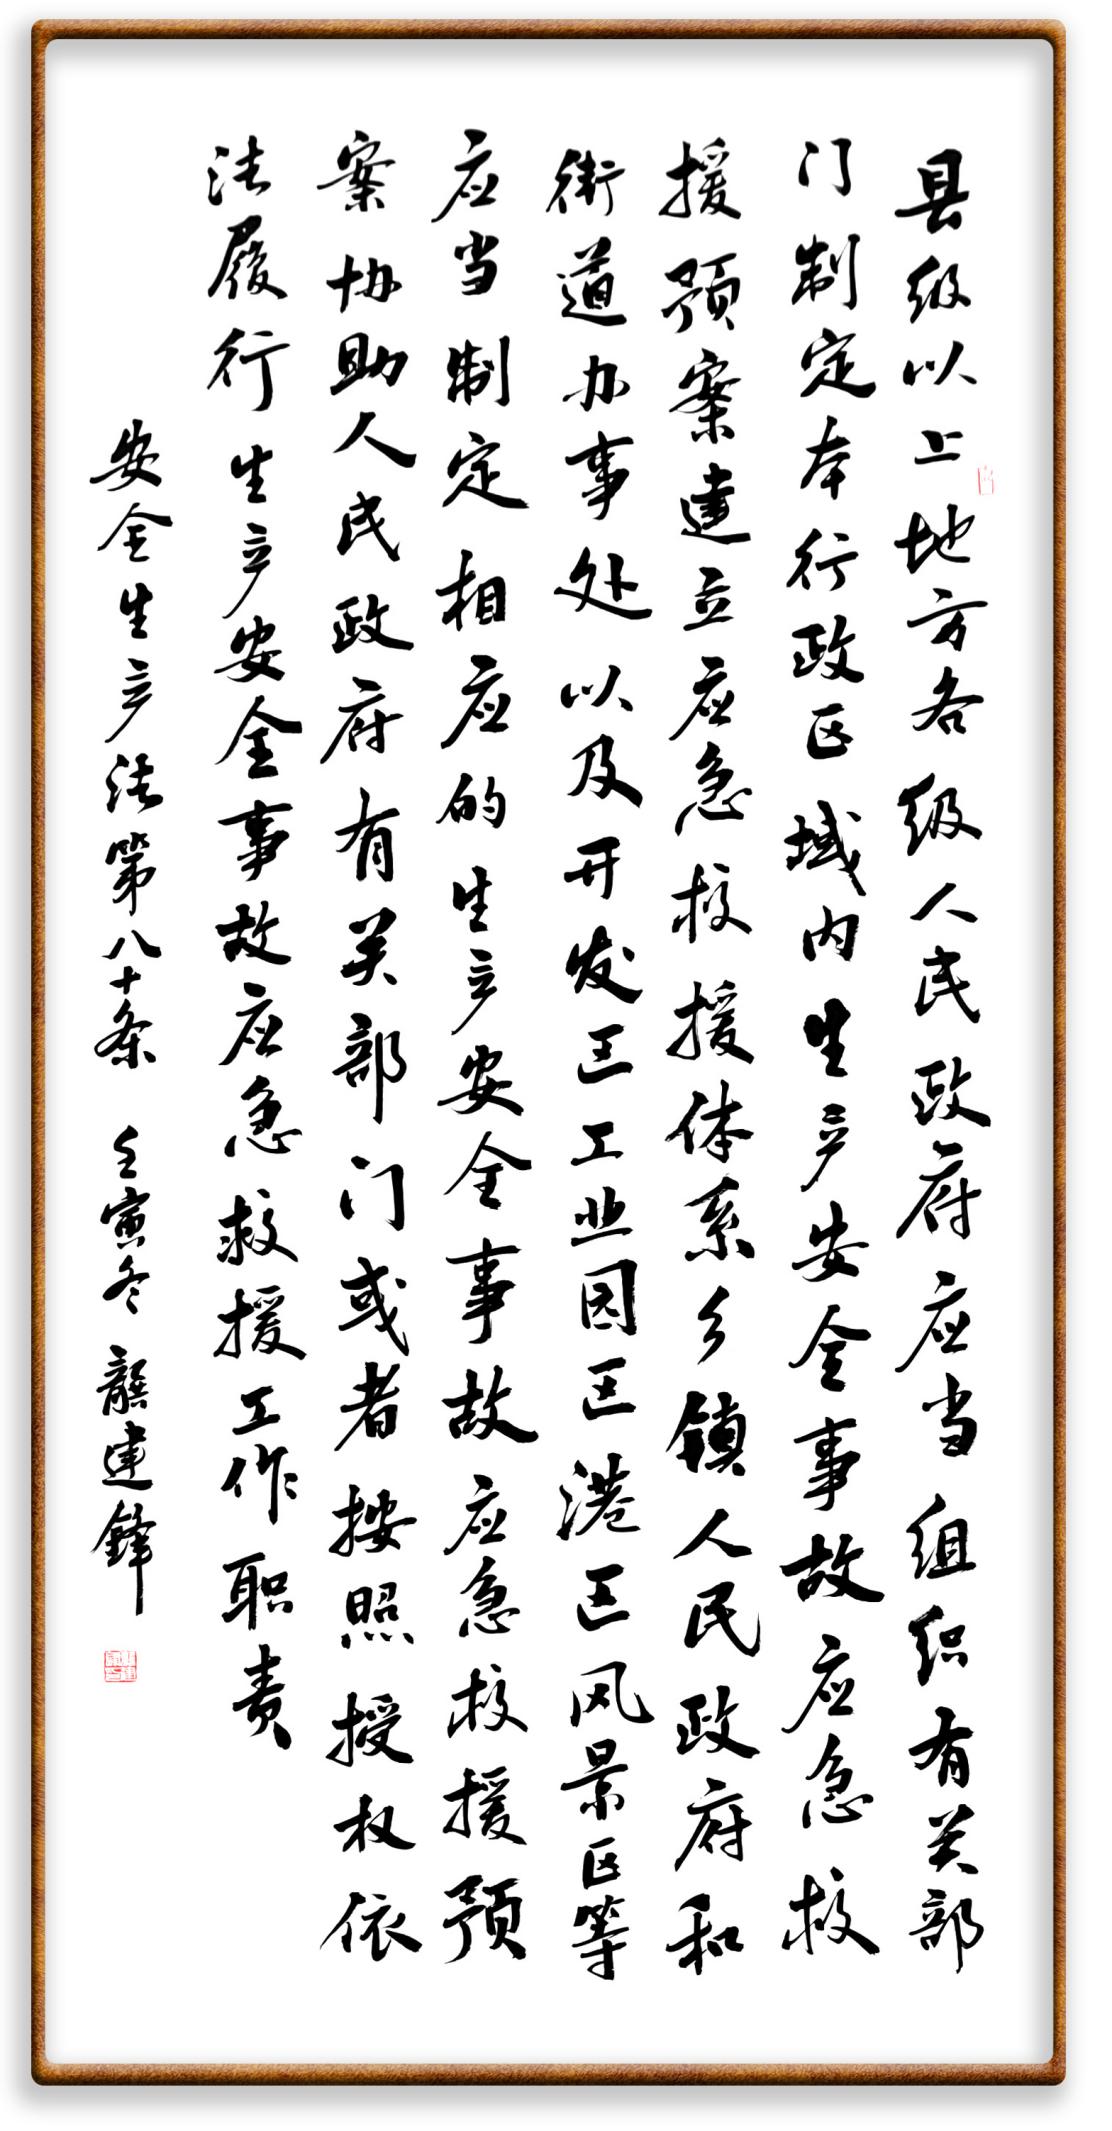 县级以上地方各级人民政府应当组织有关部
门制定本行政区域内生产安全事故应急救
援预案建立应急救援体系乡镇人民政府和
街道办事处以及开发区工业园区港区风景区等
应当制定相应的生产安全事故应急救援预
案协助人民政府有关部门或者按照授权依
法履行生产安全事故应急救援工作职责
安全生产法第八十条 壬寅冬 龚建锋